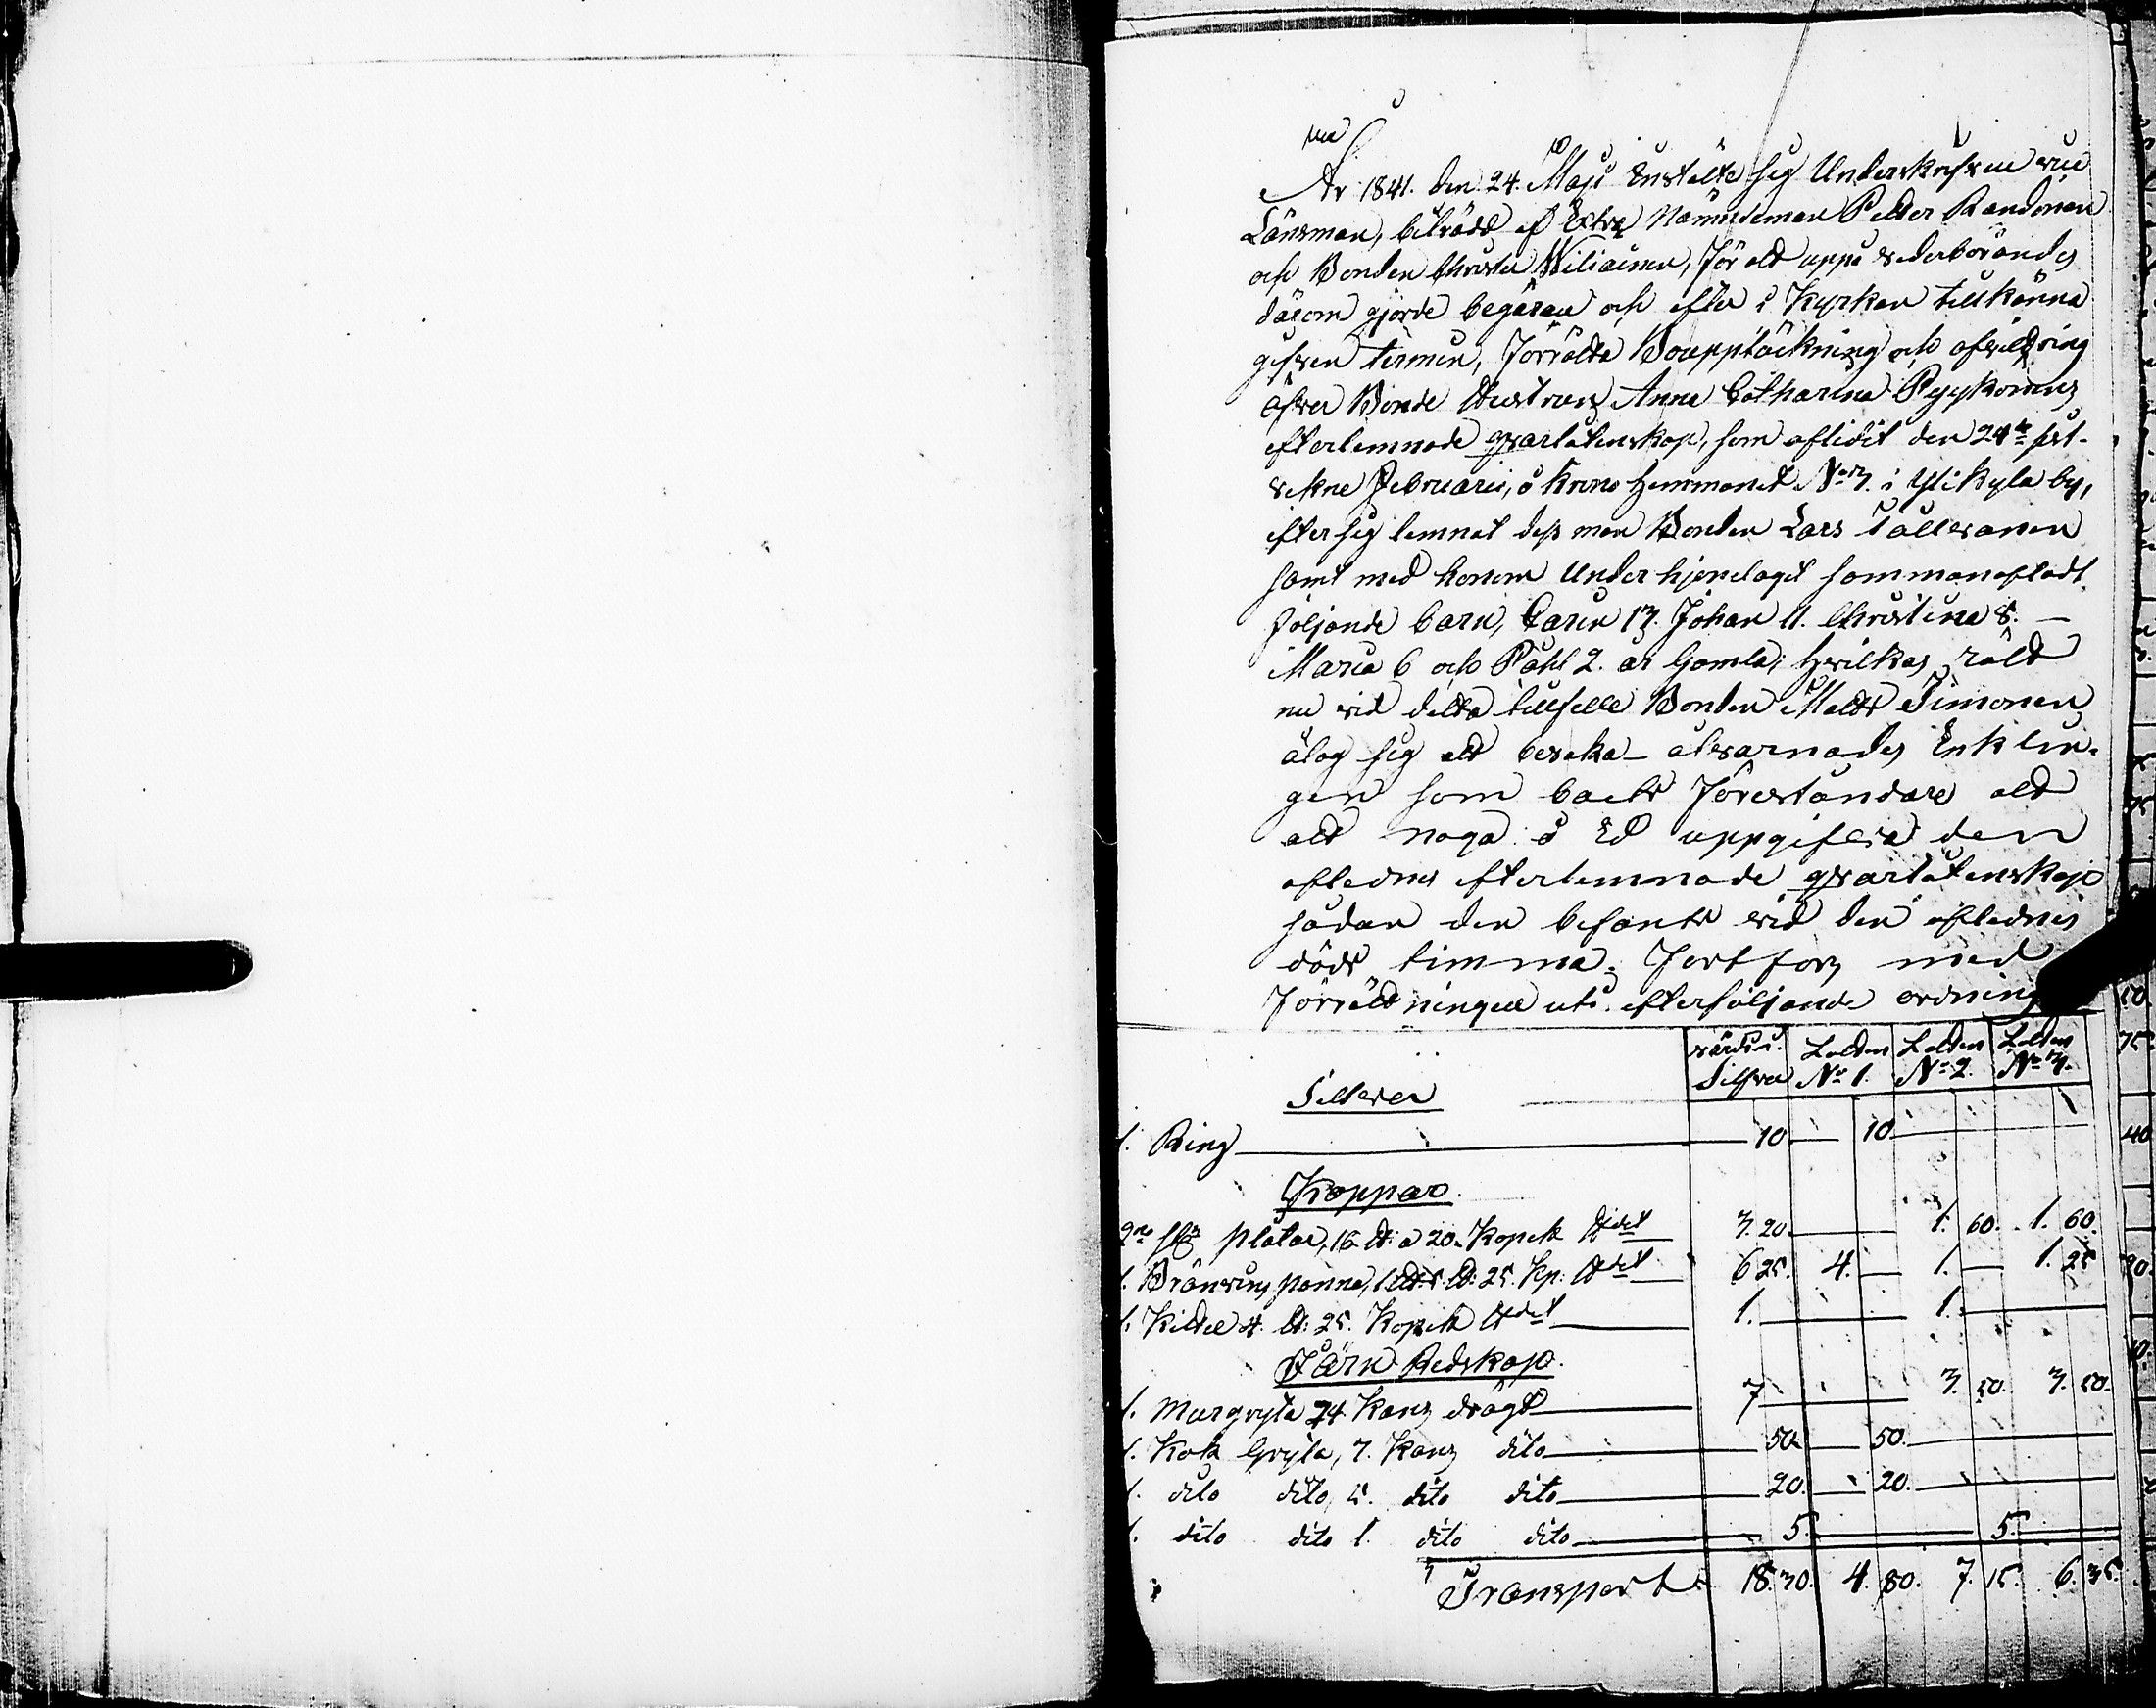 År 1841. den 24. Maji Instälte sig Underskrefven vice
Länsman, biträdd af Extra Nämndeman Petter Randonen
och Bonden Christer Wiliainen, för att uppå vederbörandes
därom gjorde begäran och efter i Kyrkan tillkänna
gifven termin, förrätta Bouppteckning och afvittring
öfver Bonde Hustrun Anna Catharina Pyykönens
efterlemnade qvarlåtenskap, som aflidit den 24de sist-
vekne Februarii, å Krono Hemmanet No 3. i Ylikylä by,
efter sig lemnat dess man Bonden Lars Tallvanen
samt med honom Under hjonelaget sammanaflat
följande barn, Carin 13. Johan 11. Christina 8. —
Maria 6 och Påhl 2. år Gamla; hvilkas rätt
nu vid detta tillfälle Bonden Matts Timonen
åtog sig att bevaka — alvarnades Enklin-
gen som boets föreståndare att
allt noga å Ed uppgifva den
aflednes efterlemnade qvarlåtenskap
sådan den befants vid den aflednes
döds timma; Fortfors med
förrättningen uti efterföljande ordning
värde i Silfver Lotten No 1. Lotten No 2. Lotten No 3.
Silfver
1. Ring 10 10
Koppar.
2ne st. plåtar, 16 lt: a 20. Kopek ltdet 3. 20. 1. 60. 1. 60.
1. Bränvins panna, lt: 25. Kp: ltdet 6 25. 4. — 1. — 1. 25
1. Kittel 4. lt: 25. Kopek ltdet 1. 1.
Järn Redskap.
1. Murgryta 24 Kans drägt 7 3. 50. 3. 50.
1. Kok Gryta, 7. Kans dito 50. 50.
1. dito dito, 5. dito dito 20. 20.
1. dito dito 1. dito dito 5. 5.
Transport 18. 30. 4. 80. 7. 15. 6. 35.